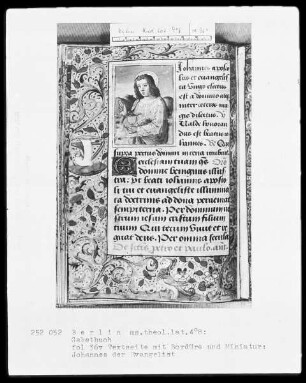 Johannes apostolus
us et evangelis
ta virgo electus
est a domino atque
inter ceteros ma
gis dilectus.
Valde honoran
dus est beatus io
hannes. Qui
supra pectus domini in cena recubuit
Ecclesiam tuam qs
domine benignus illustra
ut beati iohannis aposto
li tui et evangeliste illumina
ta doctrinis ad dona perveniat
sempiterna. Per dominum
nostrum iesum cristum filium
tuum Qui tecum vivit et re
gnat deus. Per omnia secula
De sctis petro et paulo
252 052 Berlin ms.theol.lat.4°8:
Gebetbuch
fol 16v Textseite mit Bordüre und Miniatur:
Johannes der Evangelist